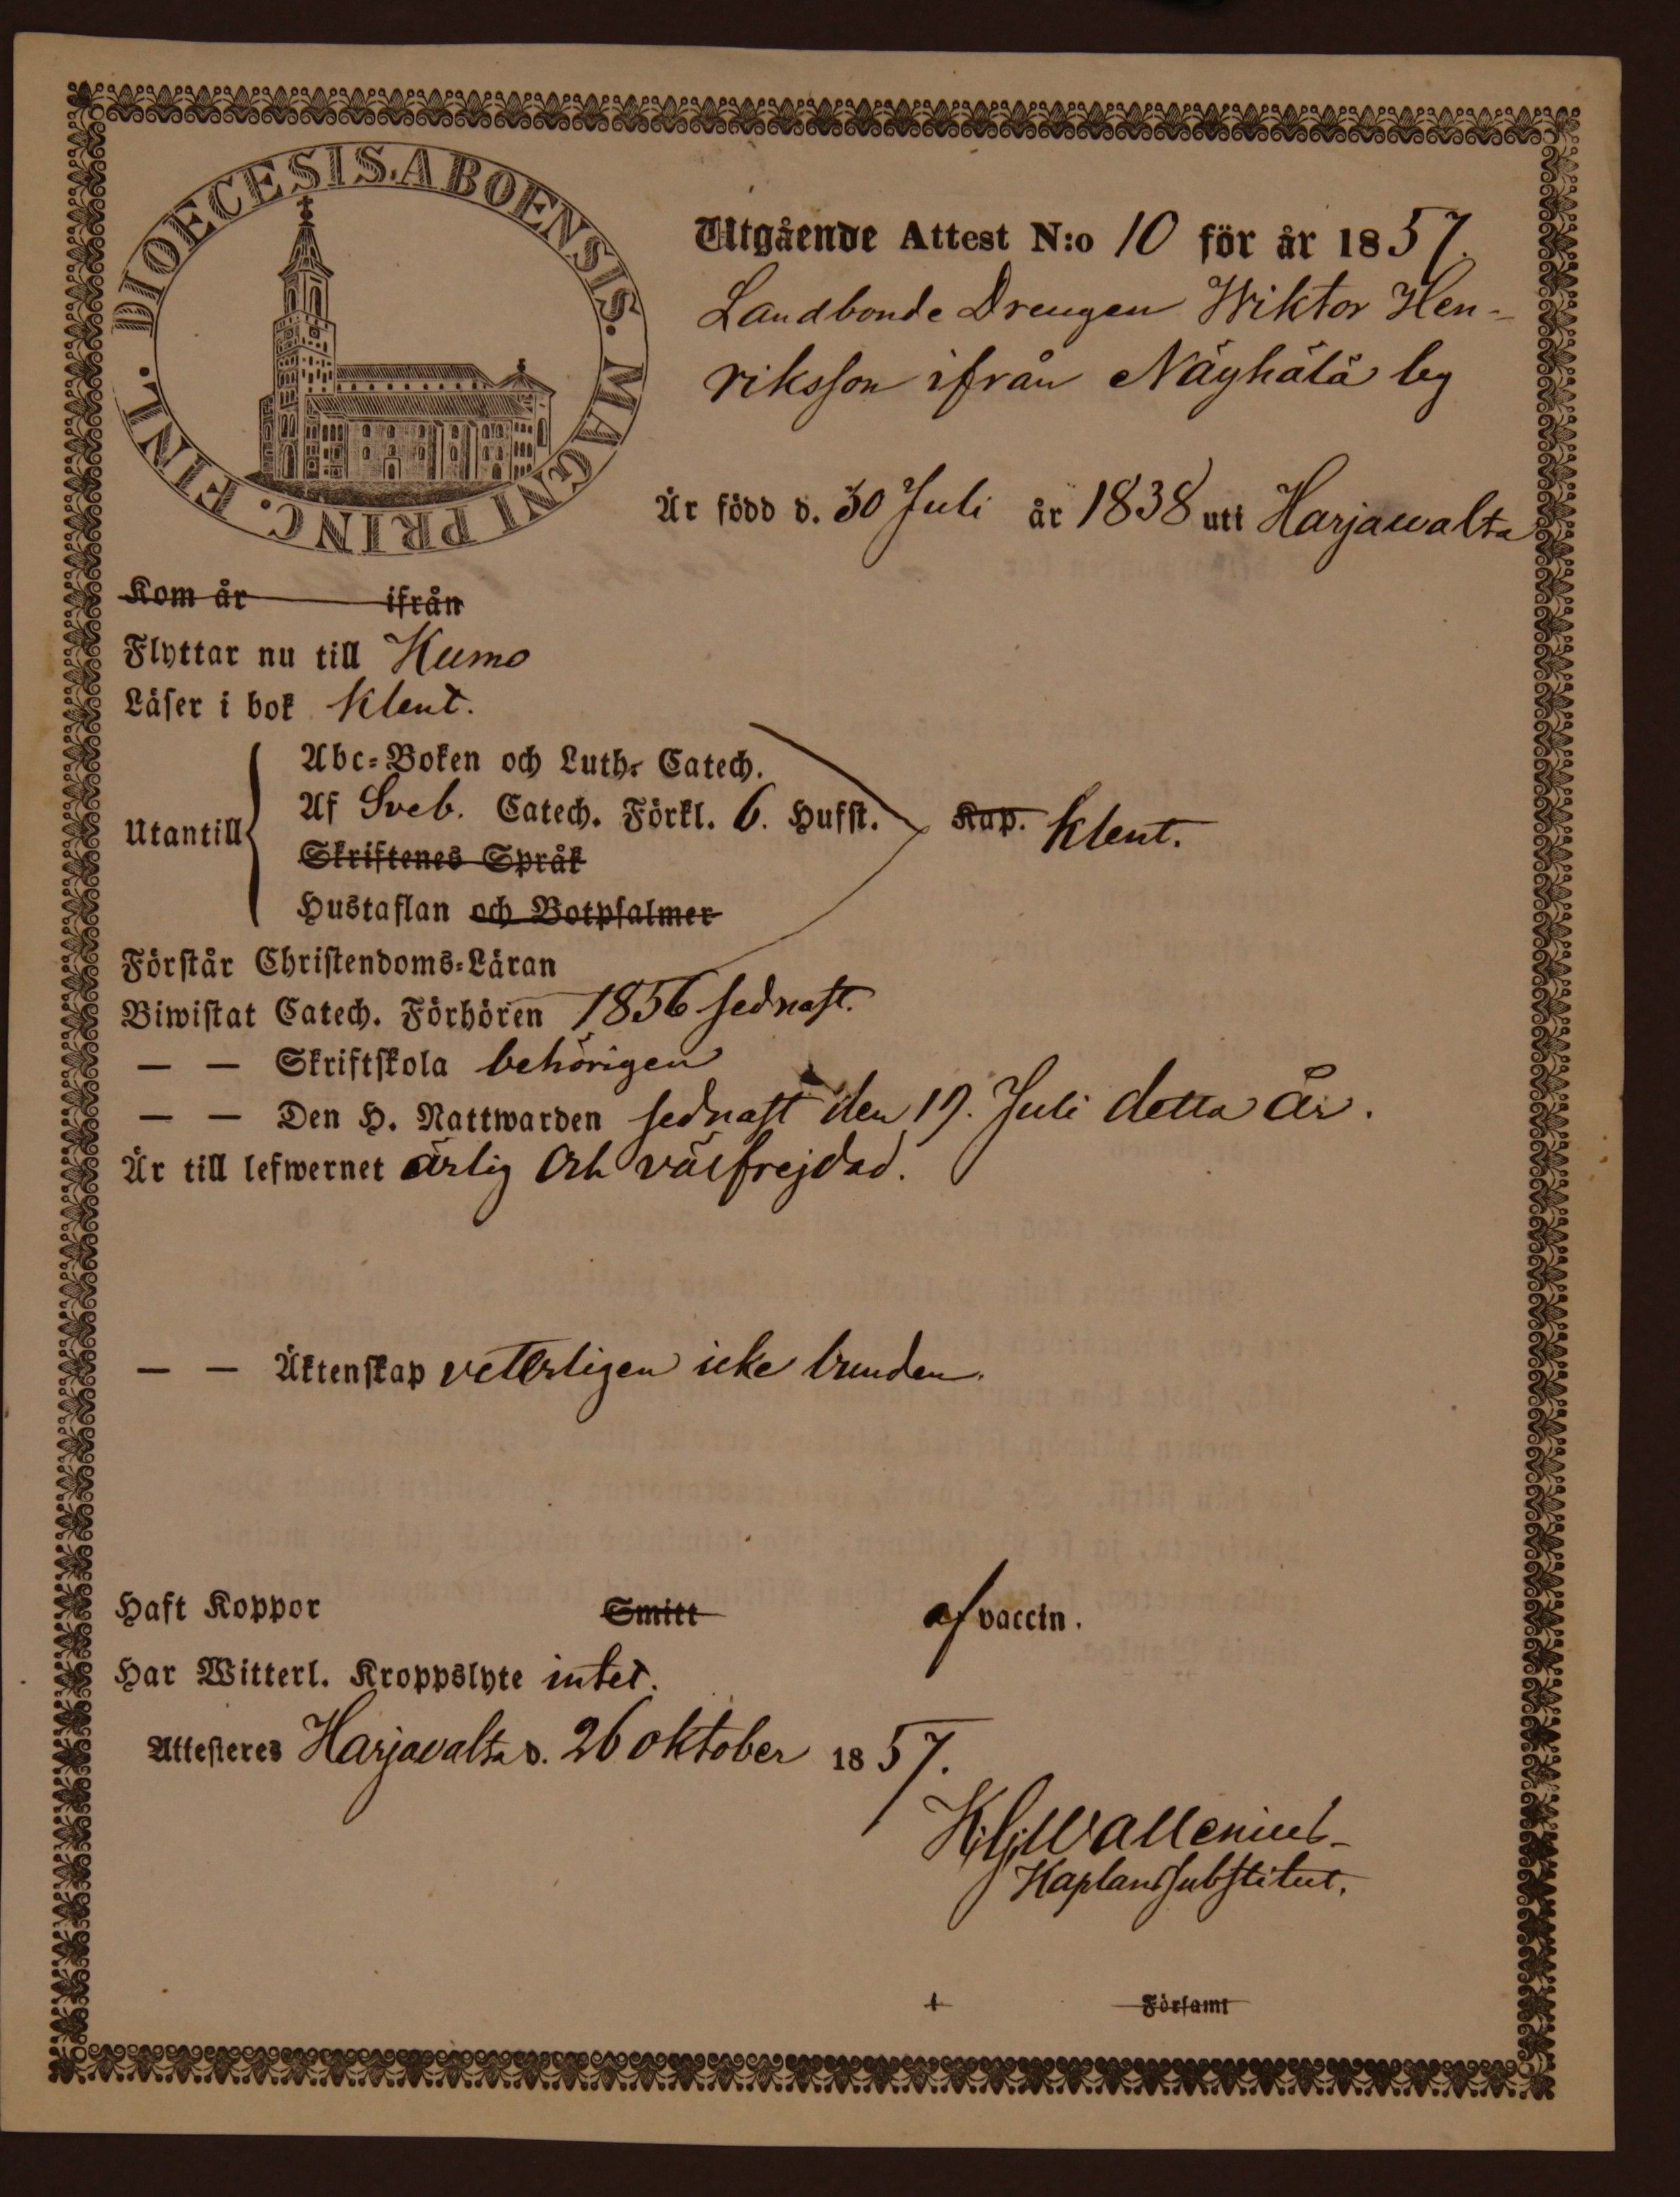 DIOECESIS.ABOENSIS. MAGNI PRINC. FINL.
Utgående Attest N:o 10 för år 1857.
Landbonde Drengen Wiktor Hen-
riksson ifrån Näyhälä by
Är född d. 30 Juli år 1838 uti Harjawalta
Kom år ifrån
Flyttar nu till Kumo
Läser i bok klent.
Utantill
Abc-Boken och Luth. Catech.
Af Sveb. Catech. Förkl. 6. Hufst. Kap. klent.
Skriftenes Språk
Hustaflan och Botpsalmer
Förstår Christendoms-Läran
Biwistat Catech. Förhören 1856 sednast.
— — Skriftskola behörigen
— — Den H. Nattwarden sednast den 19. Juli detta år.
Är till lefwernet ärlig och välfrejdad.
— — Äktenskap veterligen icke bunden.
Haft Koppor Smitt af vaccin.
Har Witterl. Kroppslyte intet.
Attesteres Harjavalta d. 26 oktober 1857.
Wallenius
Kaplanssubstitut.
Församl